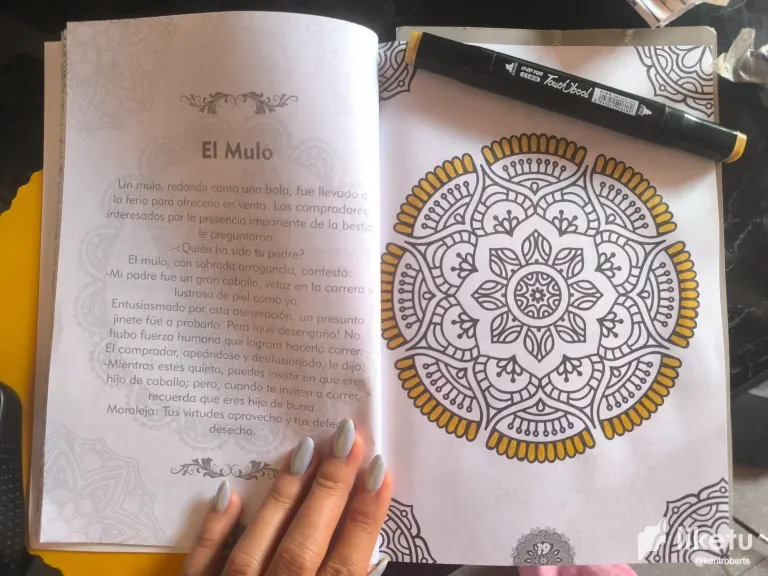 El Mulo
Un mulo, redondo como una bola, fue llevado a
la feria para ofrecerlo en venta. Los compradores,
interesados por la presencia imponente de la bestia,
le preguntaron:
-¿Quién ha sido tu padre?
El mulo, con sobrada arrogancia, contestó:
-Mi padre fue un gran caballo, veloz en la carrera y
lustroso de piel como yo.
Entusiasmado por esta aseveración, un presunto
jinete fue a probarlo. Pero ¡qué desengaño! No
hubo fuerza humana que lograra hacerlo correr.
El comprador, apeándose y desilusionado, le dijo:
-Mientras estés quieto, puedes insistir en que eres
hijo de caballo; pero, cuando te inviten a correr,
recuerda que eres hijo de burra
Moraleja: Tus virtudes aprovecha y tus defe
desecha.
Touch cool
19
liketu
@keritroberts